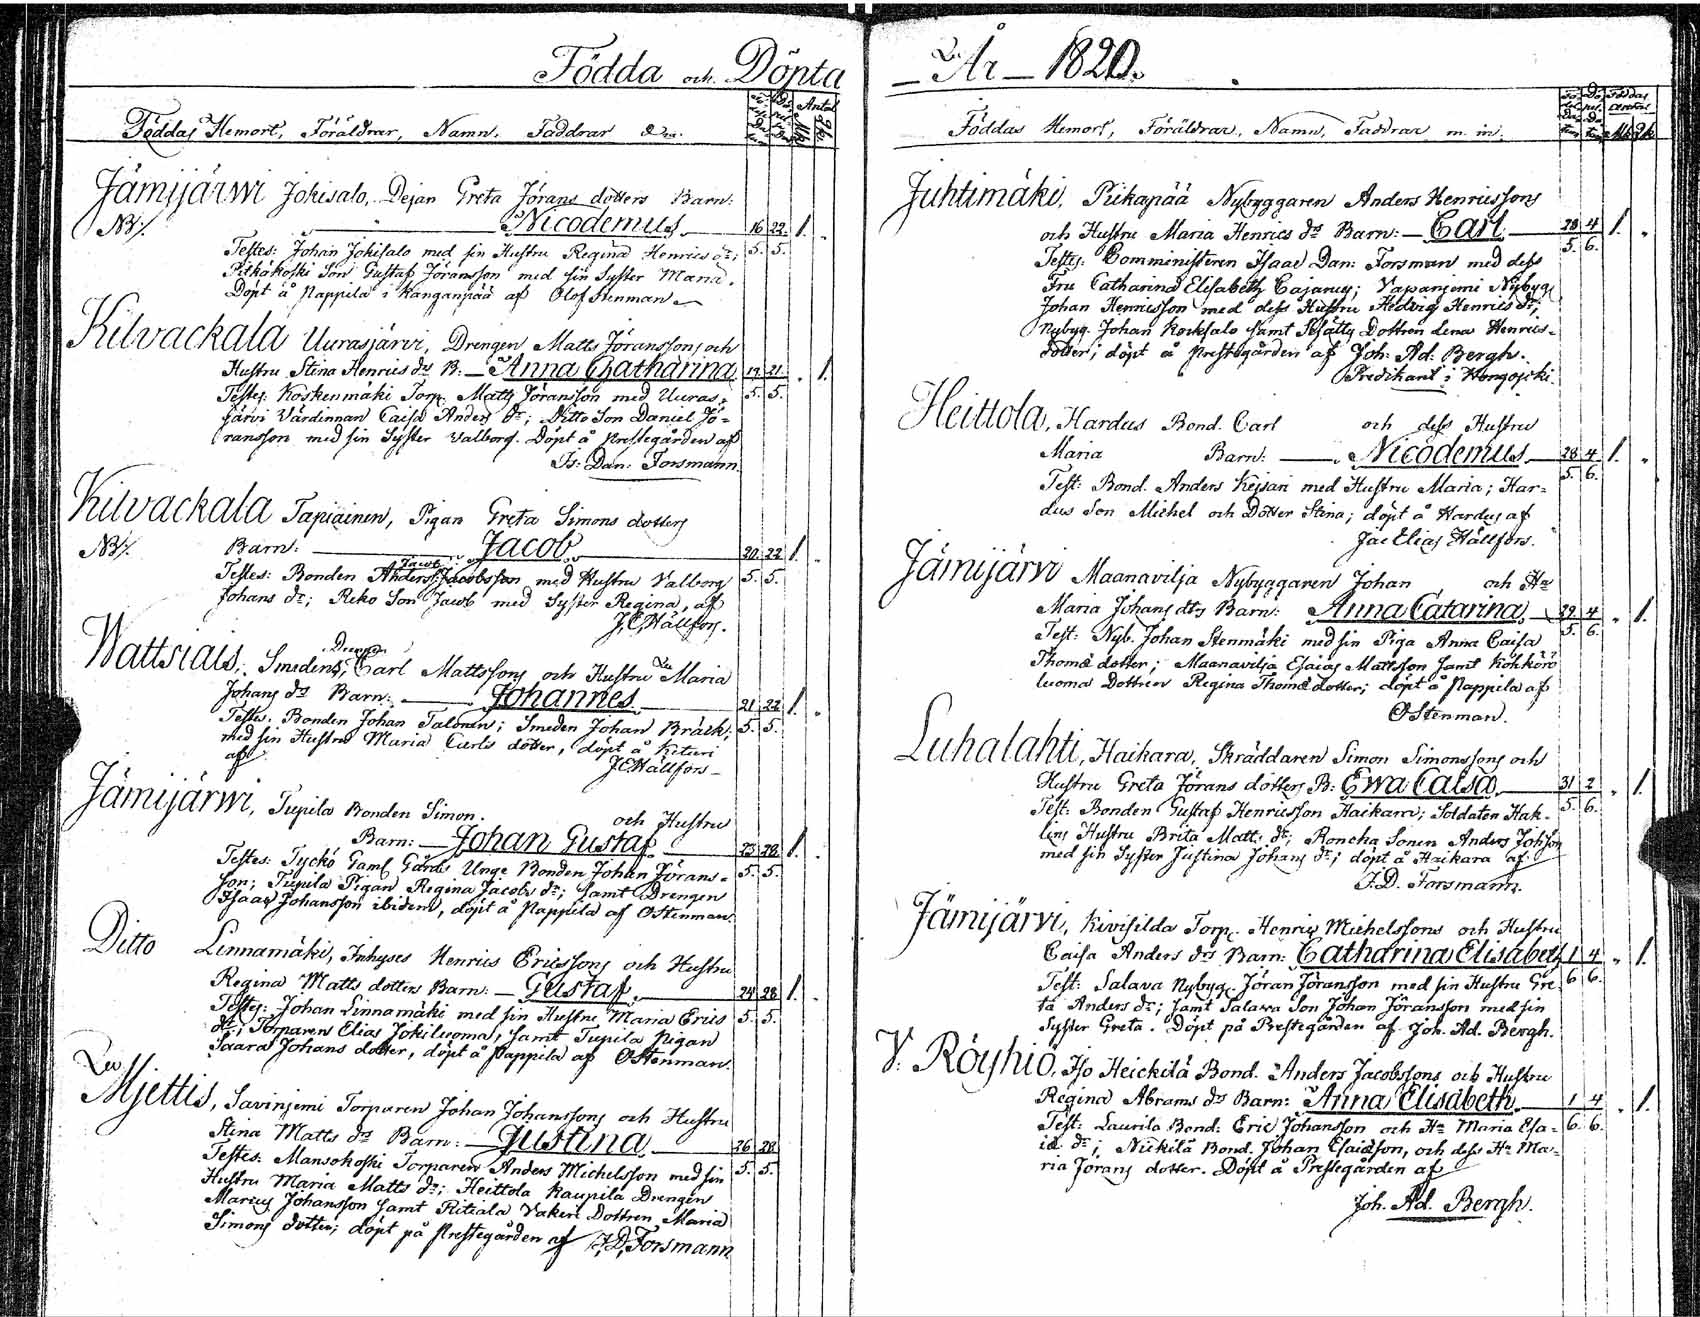 Födda och Döpta
Föddas Hemort, Föräldrar, Namn, Faddrar &c.
Antal
Mk
Qk
Jämijärwi Jokisalo, Dejan Greta Jörans dotters Barn:
NB/. Nicodemus 16 22. 1.
Testes: Johan Jokisalo med sin Hustru Regina Henrics dr; 5. 5.
Pitkäkoski Son Gustaf Jöransson med sin Syster Maria.
Döpt å Pappila i Kanganpää af Olof Stenman
Kilvackala Uurasjärvi, Drengen Matts Jöranssons och
Hustru Stina Henrics drs B: Anna Catharina 19 21. 1.
Testes: Koskenmäki Torp. Matts Jöransson med Uuras- 5. 5.
järvi Värdinnan Caisa Anders dr; Ditto Son Daniel Jö-
ransson med sin Syster Valborg. Döpt å Prestegården af
Is: Dan: Forsmann
Kilvackala Tapiainen, Pigan Greta Simons dotters
NB/. Barn: Jacob 20. 22 1.
Jacob
Testes: Bonden Anders Jacobsson med Hustru Valborg 5. 5.
Johans dr; Reko Son Jacob med Syster Regina, af
J.E. Hällfors.
Drengen
Wattsiais, Smedens, Carl Mattssons och Hustru Maria
Johans drs Barn: Johannes 21 22 1.
Testes: Bonden Johan Talonen; Smeden Johan Bräck; 5. 5.
med sin Hustru Maria Carls dotter, döpt å Kituri
af J.E. Hällfors
Jämijärwi, Tupila Bonden Simon. och Hustru
Barn: Johan Gustaf 23 28 1.
Testes: Tyckö Gaml Gårds Unge Bonden Johan Jörans- 5. 5.
son; Tupila Pigan Regina Jacobs dr; samt Drengen
Isaac Johansson ibidem, döpt å Pappila af O Stenman.
Ditto Linnamäki, Inhyses Henrics Ericssons och Hustru
Regina Matts dotters Barn: Gustaf 24 28 1.
Testes: Johan Linnamäki med sin Hustru Maria Erics 5. 5.
dr; Torparen Elias Jokiluoma, samt Tupila Pigan
Saara Johans dotter, döpt å Pappila af O Stenman.
Mjettis, Savinjemi Torparen Johan Johanssons och Hustru
Stina Matts drs Barn: Justina 26 28
Testes: Mansokoski Torparen Anders Michelsson med sin 5. 5.
Hustru Maria Matts dr; Heittola Kaupila Drengen
Marcus Johansson samt Ritiala Vakeri Dottren Maria
Simons dotter; döpt på Prestegården af I,D, Forsmann
År 1820.
Föddas Hemort, Föräldrar, Namn, Faddrar m. m.
Föddas
Antal
Mk Qk
Juhtimäki, Piikapää Nybyggaren Anders Henricssons
och Hustru Maria Henrics drs Barn: Carl 28 4 1.
Testes: Comministeren Isaac Dan: Forsman med dess 5. 6.
Fru Catharina Elisabeth Cajanus; Vapanjemi Nybyg.
Johan Henricsson med dess Hustru Hedvig Henrics dr;
Nybyg. Johan Korksalo samt Dottren Lena Henrics-
dotter; döpt å Prestegården af Joh: Ad: Bergh.
Predikant i Hongojoki
Heittola, Hardus Bond. Carl och dess Hustru
Maria Barn: Nicodemus 28 4 1.
Test: Bond. Anders Keisari med Hustru Maria; Har- 5. 6.
dus Son Michel och Dotter Stina; döpt å Hardus af
Jac Elias Hällfors.
Jämijärvi Maanavilja Nybyggaren Johan och Hu
Maria Johans dtrs Barn: Anna Catarina 29. 4 1.
Test: Nyb. Johan Stenmäki med sin Piga Anna Caisa 5. 6.
Thomæ dotter; Maanavilja Esaias Mattsson samt Kökkörö
luoma Dottren Regina Thomæ dotter; döpt å Pappila af
O Stenman.
Luhalahti, Haikara, Skräddaren Simon Simonssons och
Hustru Greta Jörans dotters B: Ewa Caisa 31 2 1.
Test: Bonden Gustaf Henricsson Haikara; Soldaten Hak- 5. 6.
lins Hustru Brita Matts dr; Roncha Sonen Anders Johsson
med sin Syster Justina Johans dr; döpt å Haikara af
I.D. Forsmann.
Jämijärvi, Kivisilda Torp. Henric Michelssons och Hustru
Caisa Anders drs Barn: Catharina Elisabeth 1 4 1.
Test: Salava Nybyg. Jöran Jöransson med sin Hustru Gre- 6 6.
ta Anders dr; samt Salava Son Johan Jöransson med sin
Syster Greta. Döpt på Prestegården af Joh. Ad. Bergh.
V: Röyhiö, Iso Heickilä Bond. Anders Jacobssons och Hustru
Regina Abrams drs Barn: Anna Elisabeth 1 4 1.
Test: Laurila Bond: Eric Johansson och Hu Maria Esa- 6. 6.
iæ dr; Nickilä Bond. Johan Esaiæsson, och dess Hu Ma-
ria Jörans dotter. Döpt å Prestegården af
Joh. Ad. Bergh.